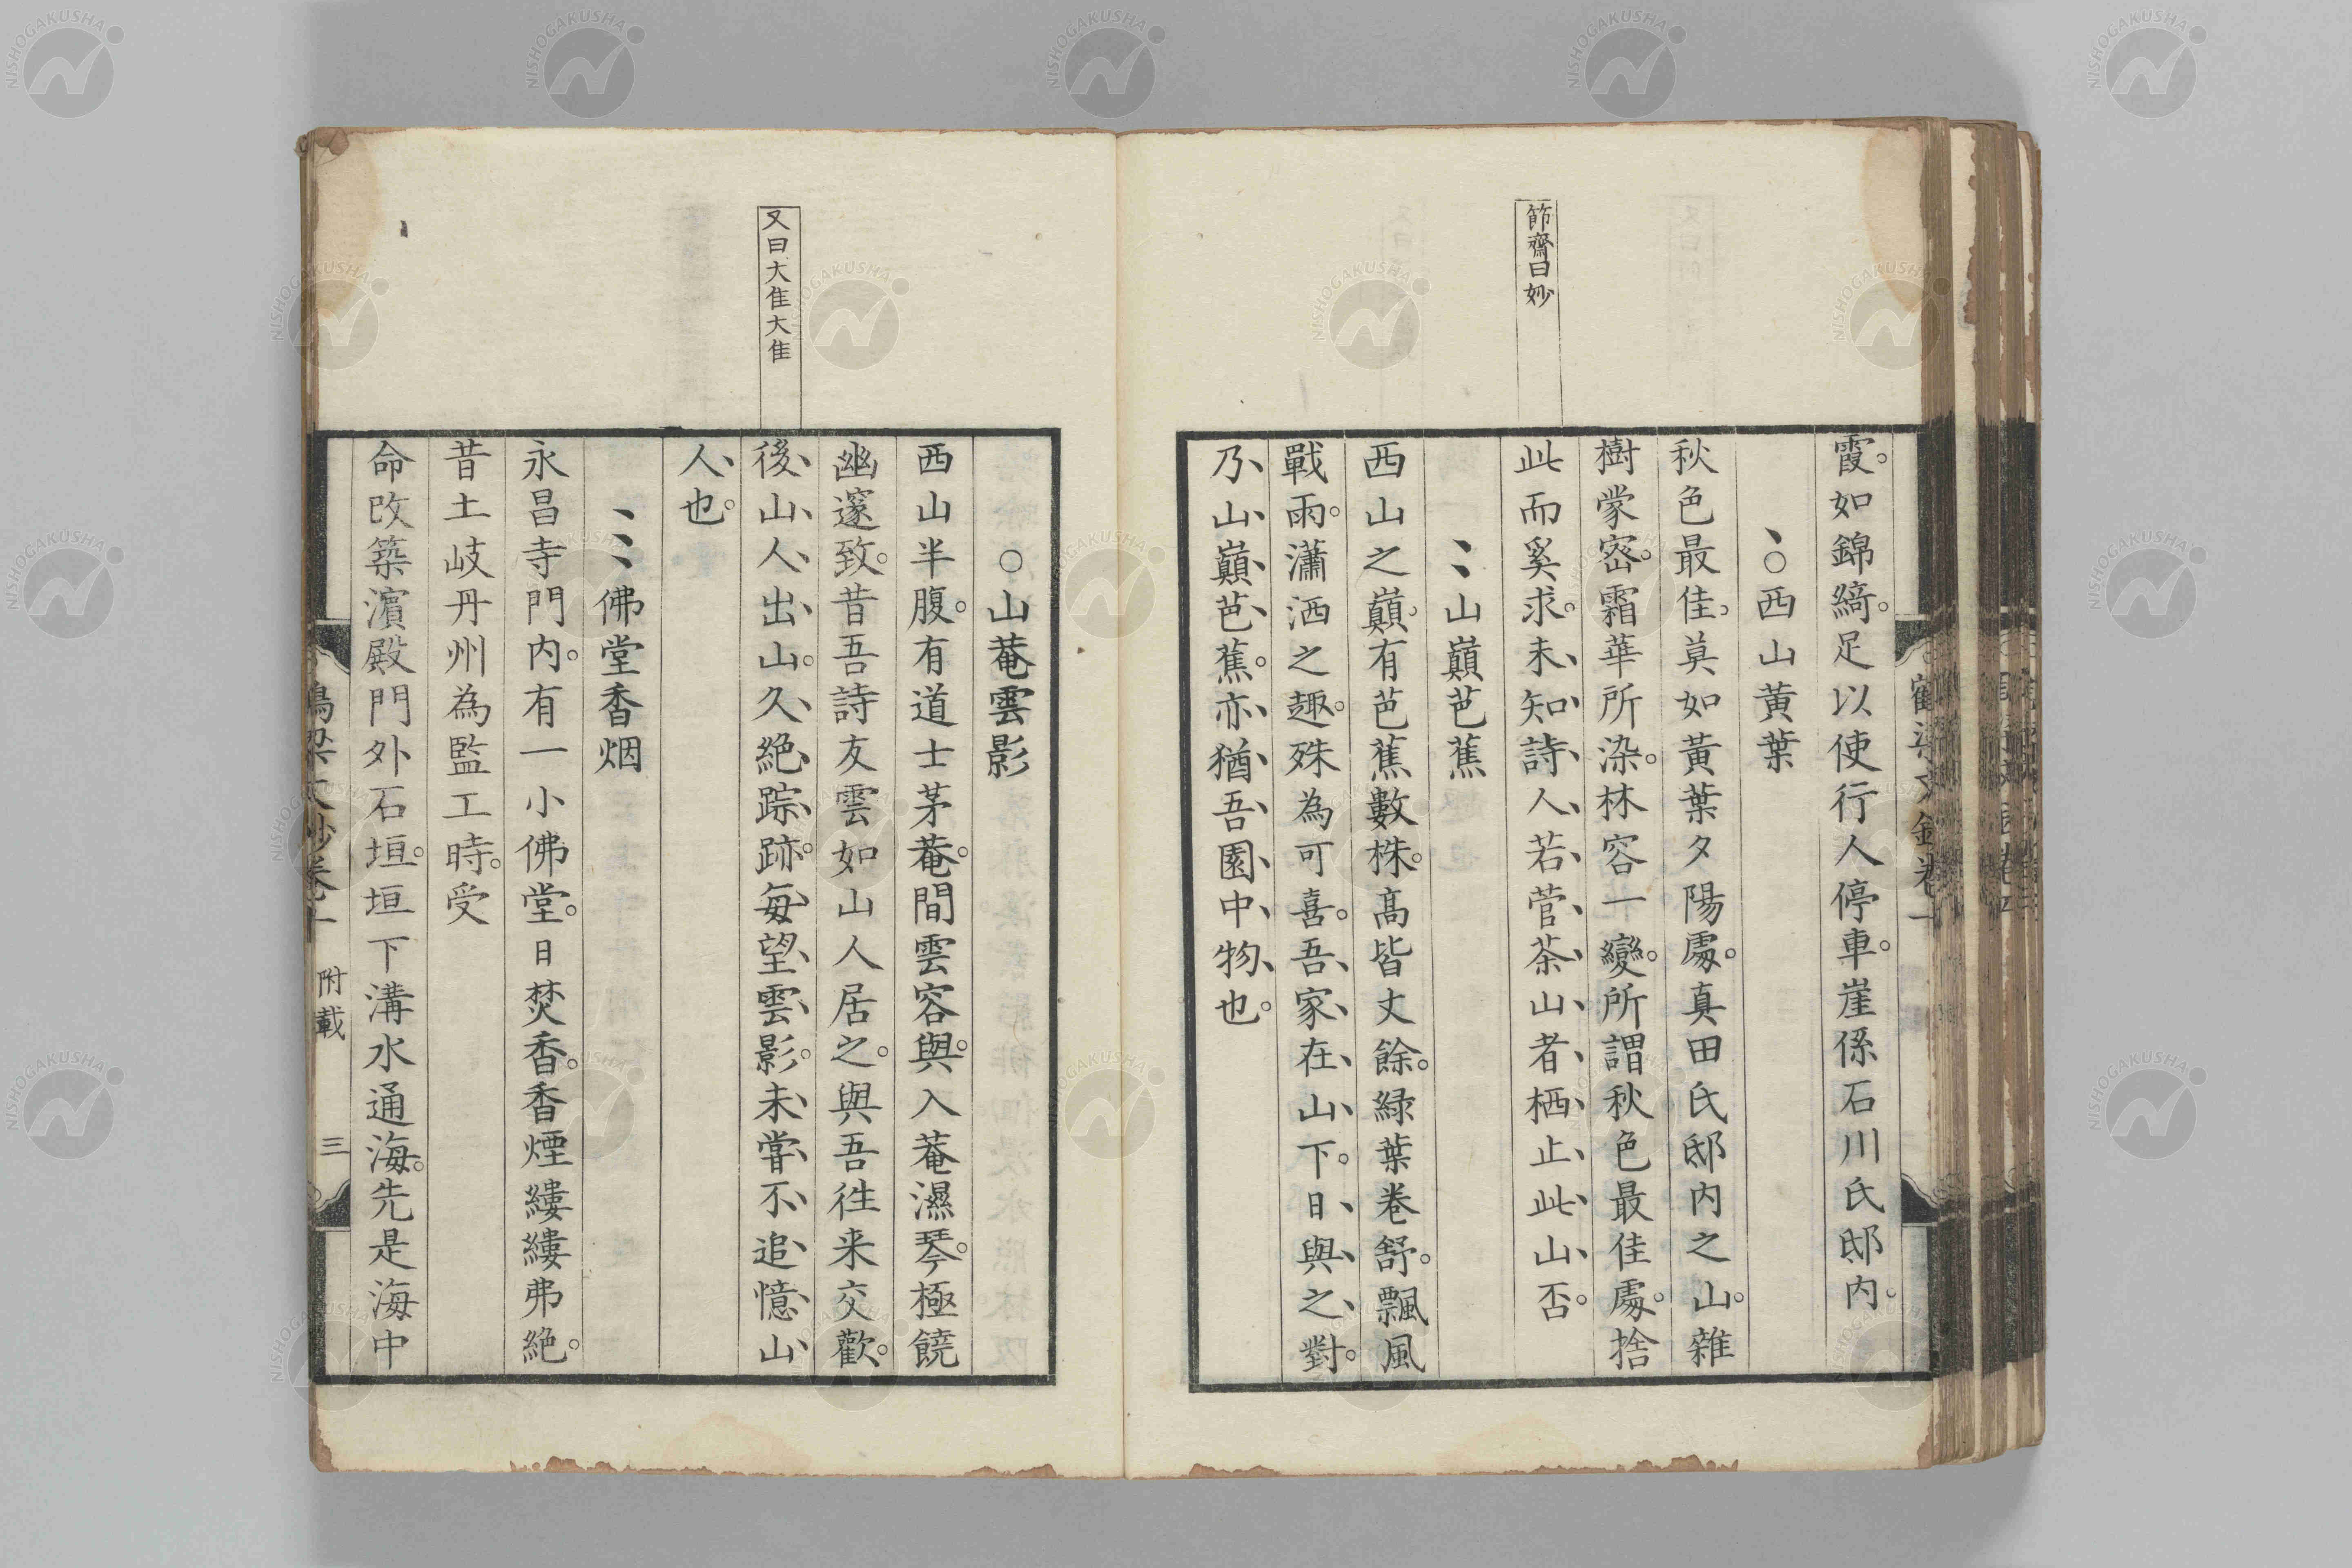 節齋曰妙
霞。如錦綺。足以使行人停車。崖係石川氏邸内。
、○西山黄葉
秋色最佳。莫如黃葉夕陽處。真田氏邸内之山。雜
樹蒙密。霜華所染。林容一變。所謂秋色最佳處。捨
此而奚求。未知詩人若菅茶山者栖止此山否。
、、山巔芭蕉
西山之巔。有芭蕉數株。髙皆丈餘。緑葉卷舒。飄風
戰雨。瀟洒之趣。殊為可喜。吾家在山下。日與之對。
乃山巔芭蕉。亦猶吾園中物也。
又曰大隹大隹
○山菴雲影
西山半腹。有道士茅菴。菴間雲容與。入菴濕琴。極饒
幽邃致。昔吾詩友雲如山人居之。與吾徃来交歡。
後山人出山。久絶踪跡。每望雲影。未甞不追憶山
人也。
、、佛堂香烟
永昌寺門内。有一小佛堂。日焚香。香煙縷縷弗絶。
昔土岐丹州為監工時。受
命改築濵殿門外石垣。垣下溝水通海。先是海中
附載
三
NISHOGAKUSHA